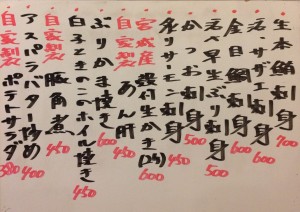 生本鮪刺身 700
活サザエ刺身 600
金目鯛刺身 600
刺身 500
かつお刺身 500
炙りサーモン刺身 450
宮城産 殻付生かき(2ケ) 600
自家製 あん肝 450
ぶりかま焼き 600
白子ときのこのホイル焼き 450
自家製 豚角煮 450
アスパラバター炒め 400
自家製 ポテトサラダ 380